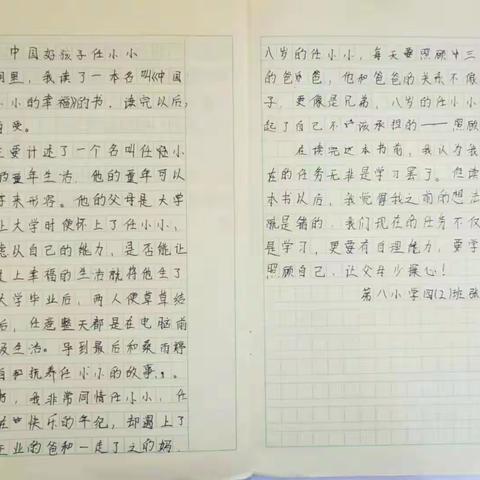 中国好孩子任小小
间里，我读了一本名叫《中国
小小的幸福》的书，读完以后，
受。
主要讲述了一个名叫任小
的童年生活。他的童年可以
来形容。他的父母是大学
上大学时便怀上了任小小，
虑从自己的能力，是否能让
上幸福的生活就将他生了
大学毕业后，两人便草草结
后，任意整天都是在电脑前
生活。导到最后和桑雨婷
自和抚养任小小的故事。
书，我非常同情任小小，任
在快乐的年纪，却遇上了
业的爸和一走了之的妈
八岁的任小小，每天要照顾
的爸爸，他和爸爸的关系不像
子，更像是兄弟，八岁的任小小
起了自己不该承担的——照顾
在读完这本书前，我认为我
在的任务无非是学习罢了。但读
本书以后，我觉得我之前的想法
就是错的，我们现在的任务不仅
是学习，更要有自理能力，要学
照顾自己，让父母少操心！
第八小学四(2)班张